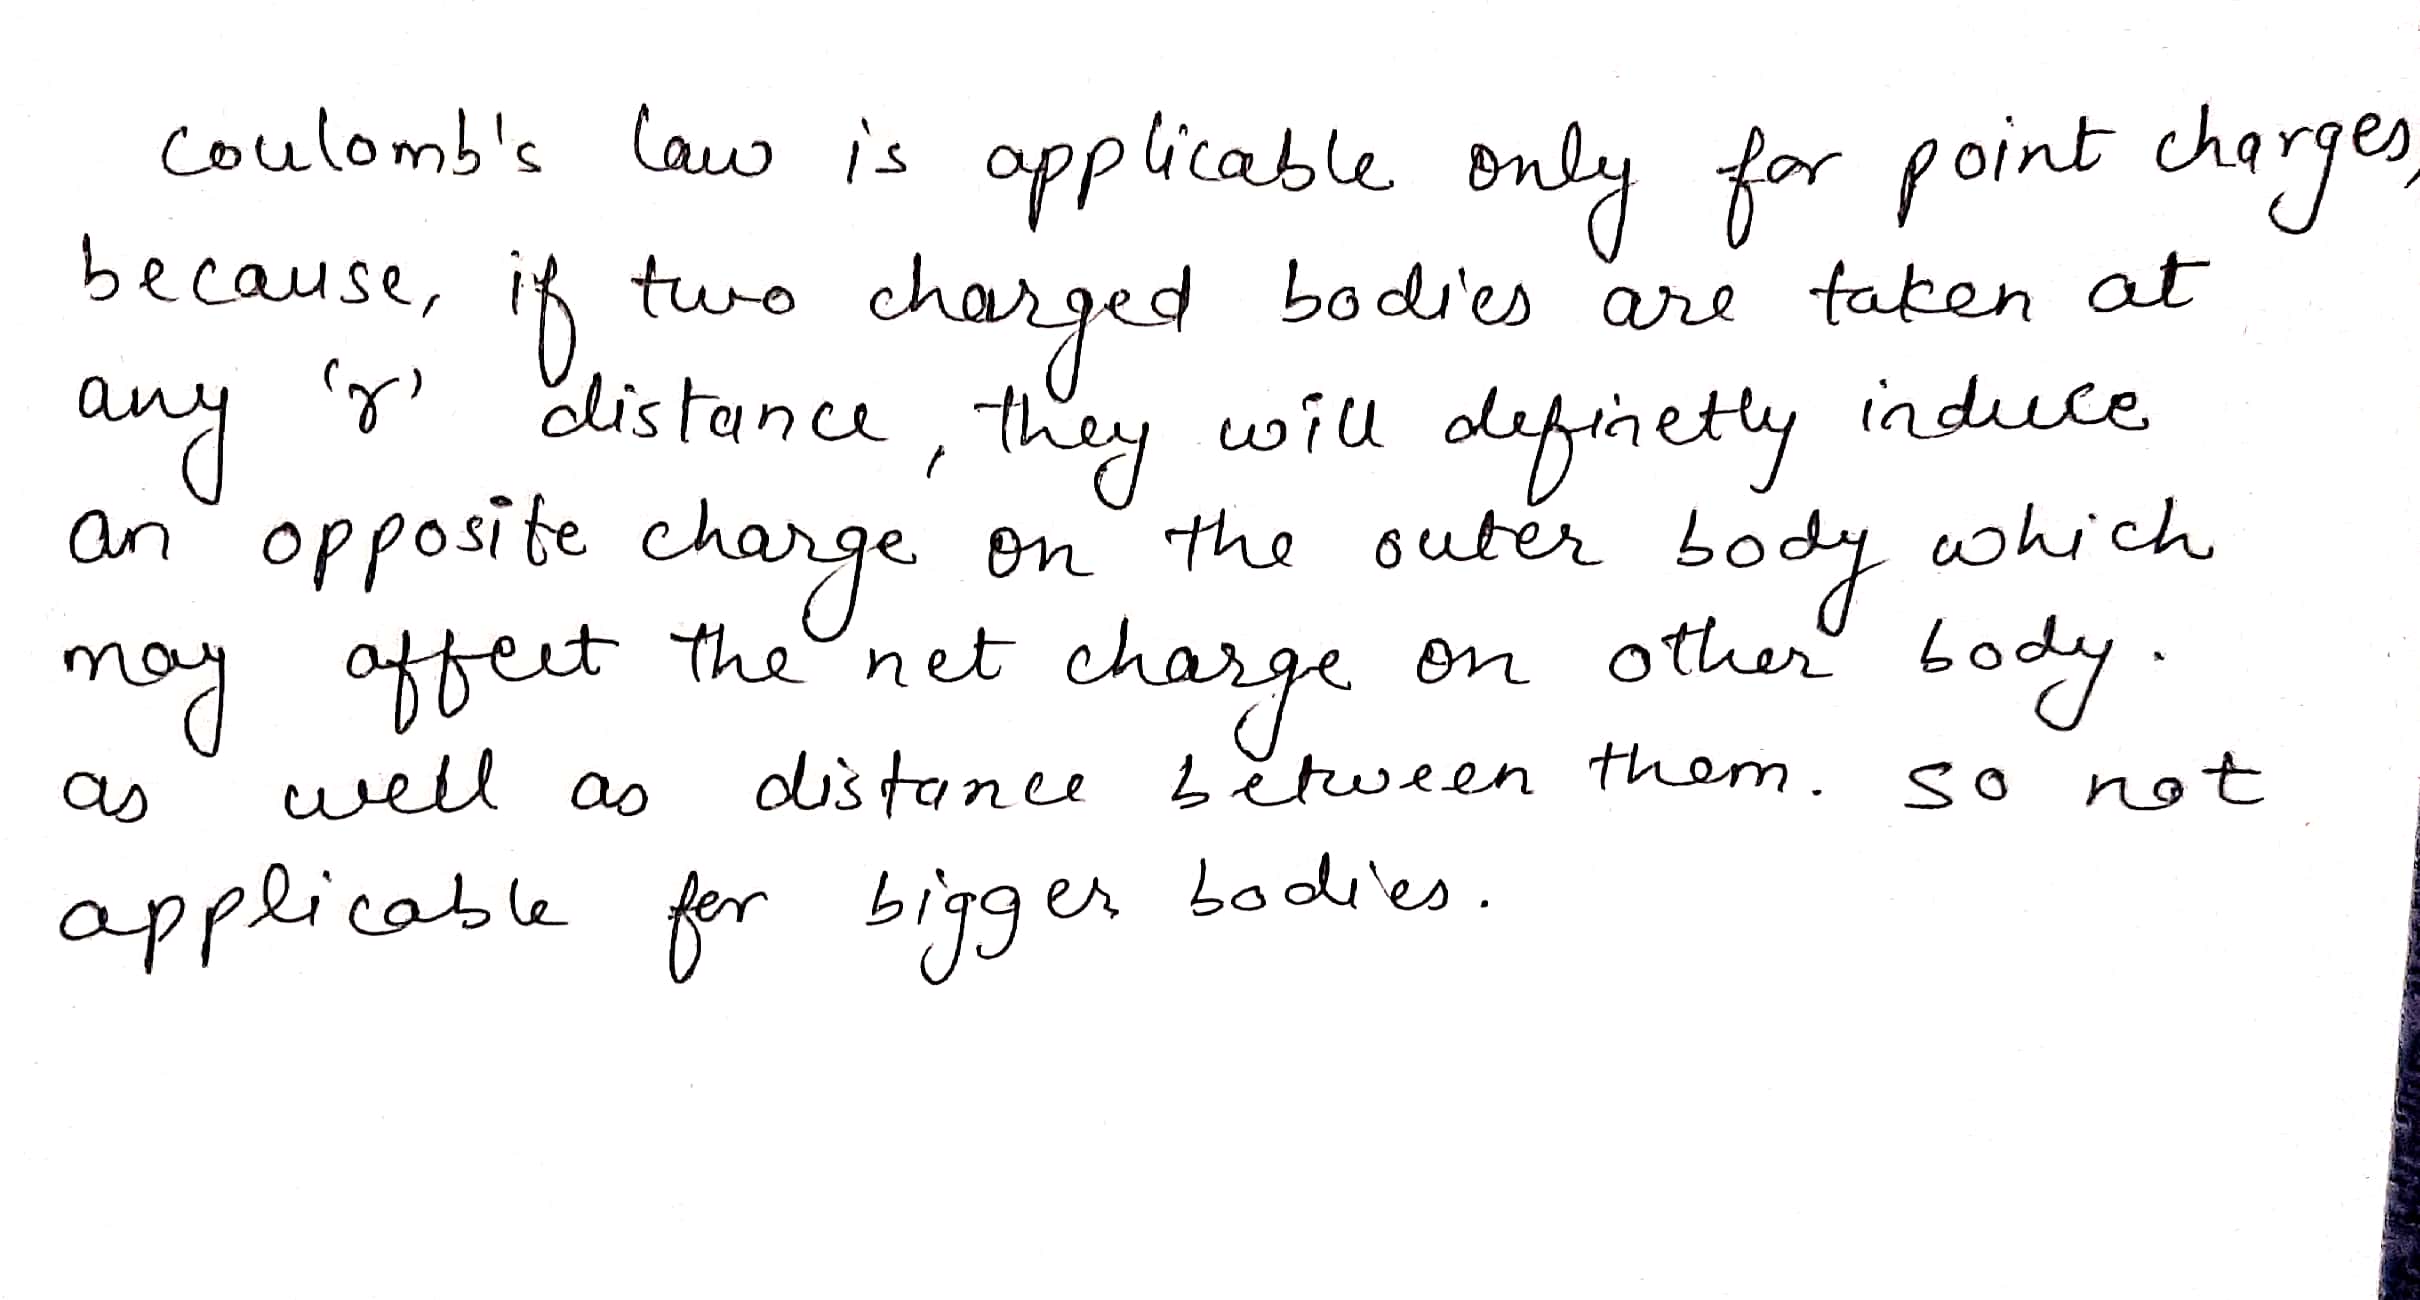 coulomb's law is applicable only for point charges,
because, if two charged bodies are taken at
any 'r' distance, they will definetly induce
an opposite charge on the outer body which
may affect the net charge on other body.
as well as distance between them. so not
applicable for bigger bodies.